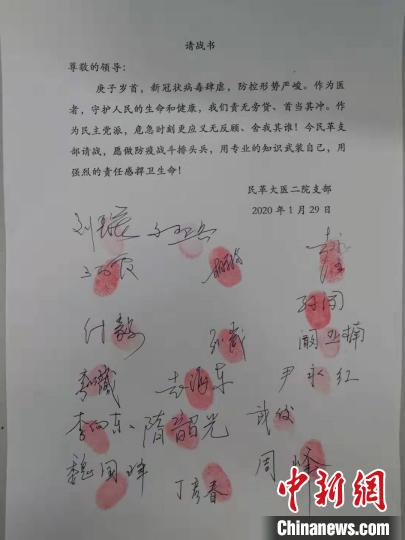 请战书
尊敬的领导：
庚子岁首，新冠状病毒肆虐，防控形势严峻。作为医
者，守护人民的生命和健康，我们责无旁贷、首当其冲。作
为民主党派，危急时刻更应义无反顾、舍我其谁！今民革支
部请战，愿做防疫战斗排头兵，用专业的知识武装自己，用
强烈的责任感捍卫生命！
民革大医二院支部
2020 年 1 月 29 日
付毅
尹永红
李向东、隋韶光
魏国晖 丁彦春 周峰
中新网